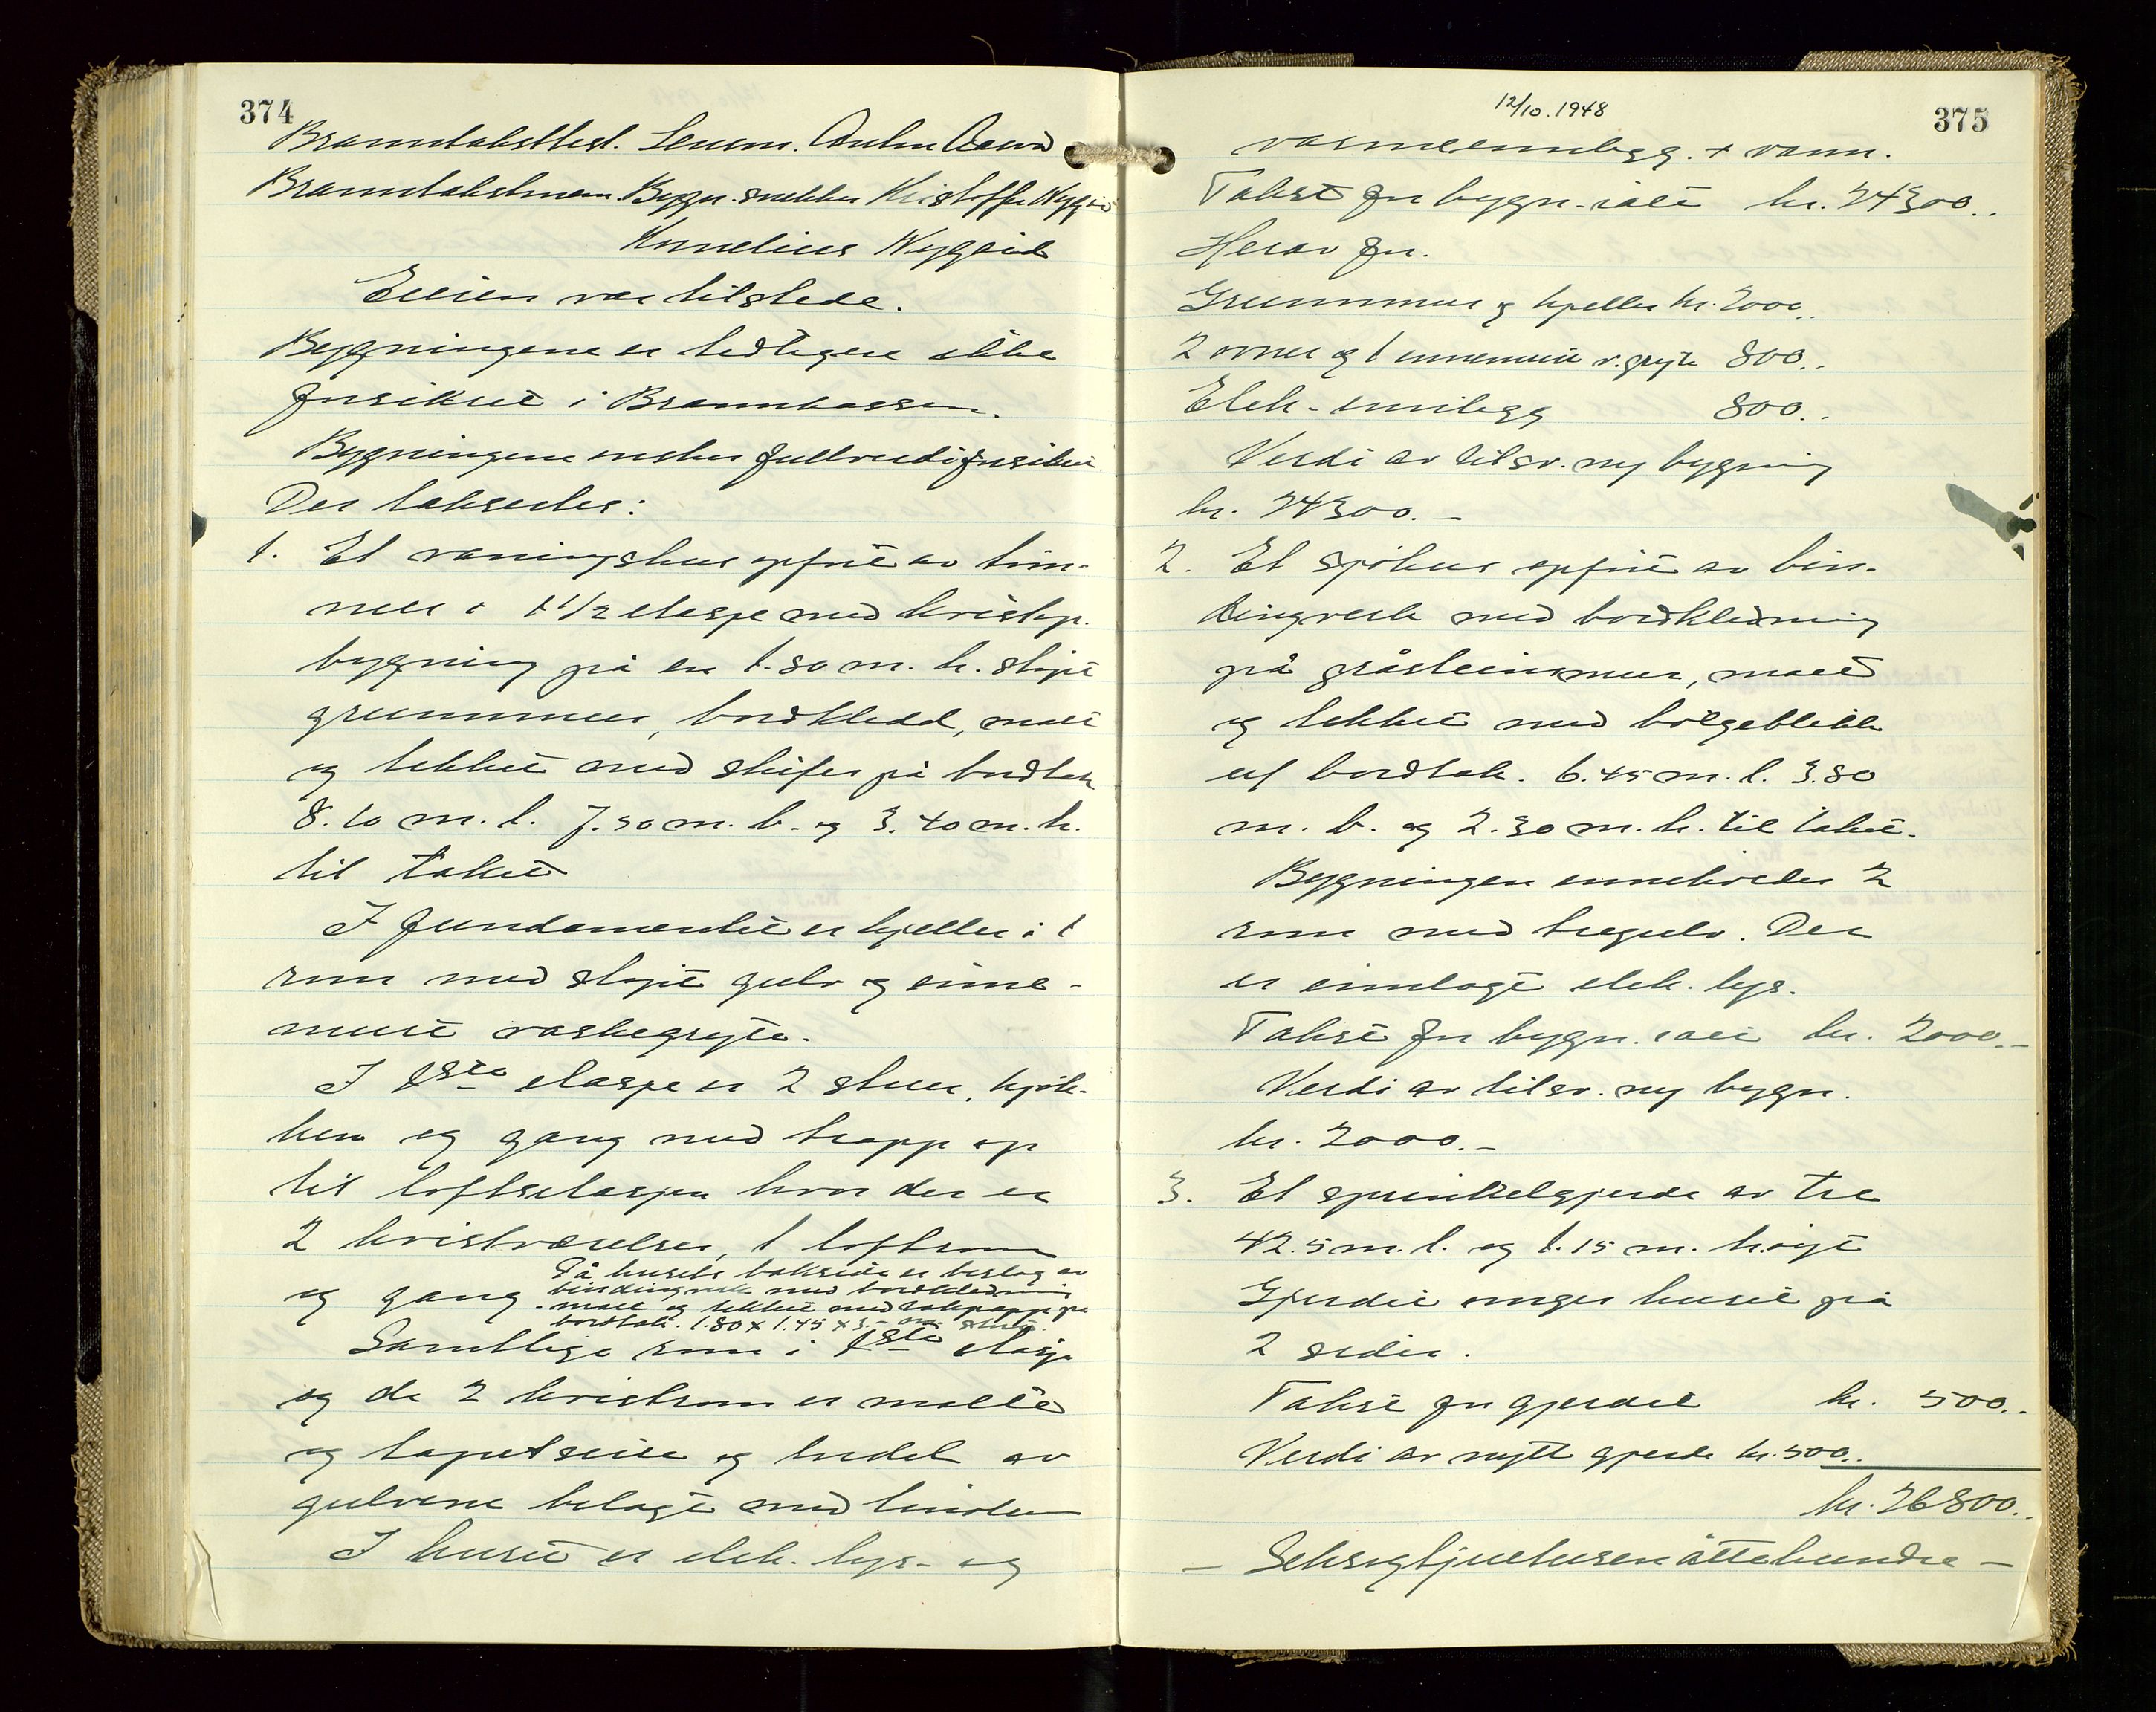 374
Branntakstbest. Lensm. Anton Aarvå
Branntakstmenn. Bygn. snekker Kristoffer Nygård
Kornelius Nygård
Eieren var tilstede.
Bygningene er tidligere ikke
forsikret i Brannkassen.
Bygningene ønskes fullverdiforsikret.
Der taksertes:
1. Et våningshus opført av tøm-
mer i 1 1/2 etasje med kvistop-
bygning på en 1.80 m. h. støpt
grunnmur, bordkledd, malt
og tekket med skifer på bordtak
8.10 m. l. 7.50 m. b. og 3.40 m. h.
til taket
I fundamentet er kjeller i 1
rom med støpt gulv og inne-
muret vaskegryte.
I 1ste etasje er 2 stuer, kjøk-
ken og gang med trapp op
til loftsetasjen hvor der er
2 kvistværelser, 1 loftsrom
og gang
På husets bakside er beslag av
bindingverk med bordkledning
malt og tekket med takpapp på
bordtak. 1.80 x 1.45 x 3.-
Samtlige rom i 1ste etasje
og de 2 kvistrom er malte
og tapetserte og endel av
gulvene belagt med linoleum
I huset er elek. lys- og
12/10.1948
375
varmeinnlegg. + vann.
Takst for bygn. ialt kr. 24300.-
Herav for.
Grunnmur og kjeller kr. 2000.-
2 ovner og 1 innemuret v.gryte 800.-
Elek- innlegg 800.-
Verdi av tilsv. ny bygning
kr. 24300.-
2. Et sjøhus opført av bin-
dingverk med bordkledning
på gråsteinsmur, malt
og tekket med bølgeblikk
uf bordtak. 6.45 m. l. 3.80
m. b. og 2.30 m. h. til taket.
Bygningen inneholder 2
rom med tregulv. Der
er innlagt elek. lys.
Takst for bygn. ialt kr. 2000.-
Verdi av tilsv. ny bygn.
kr. 2000.-
3. Et sprinkelgjerde av tre
42.5 m. l. og 1.15 m. høigt
Gjerdet omgir huset på
2 sider.
Takst for gjerdet kr. 500.-
Verdi av nytt gjerde kr. 500.-
kr. 26800.-
- Seksogtjuetusenåttehundre -